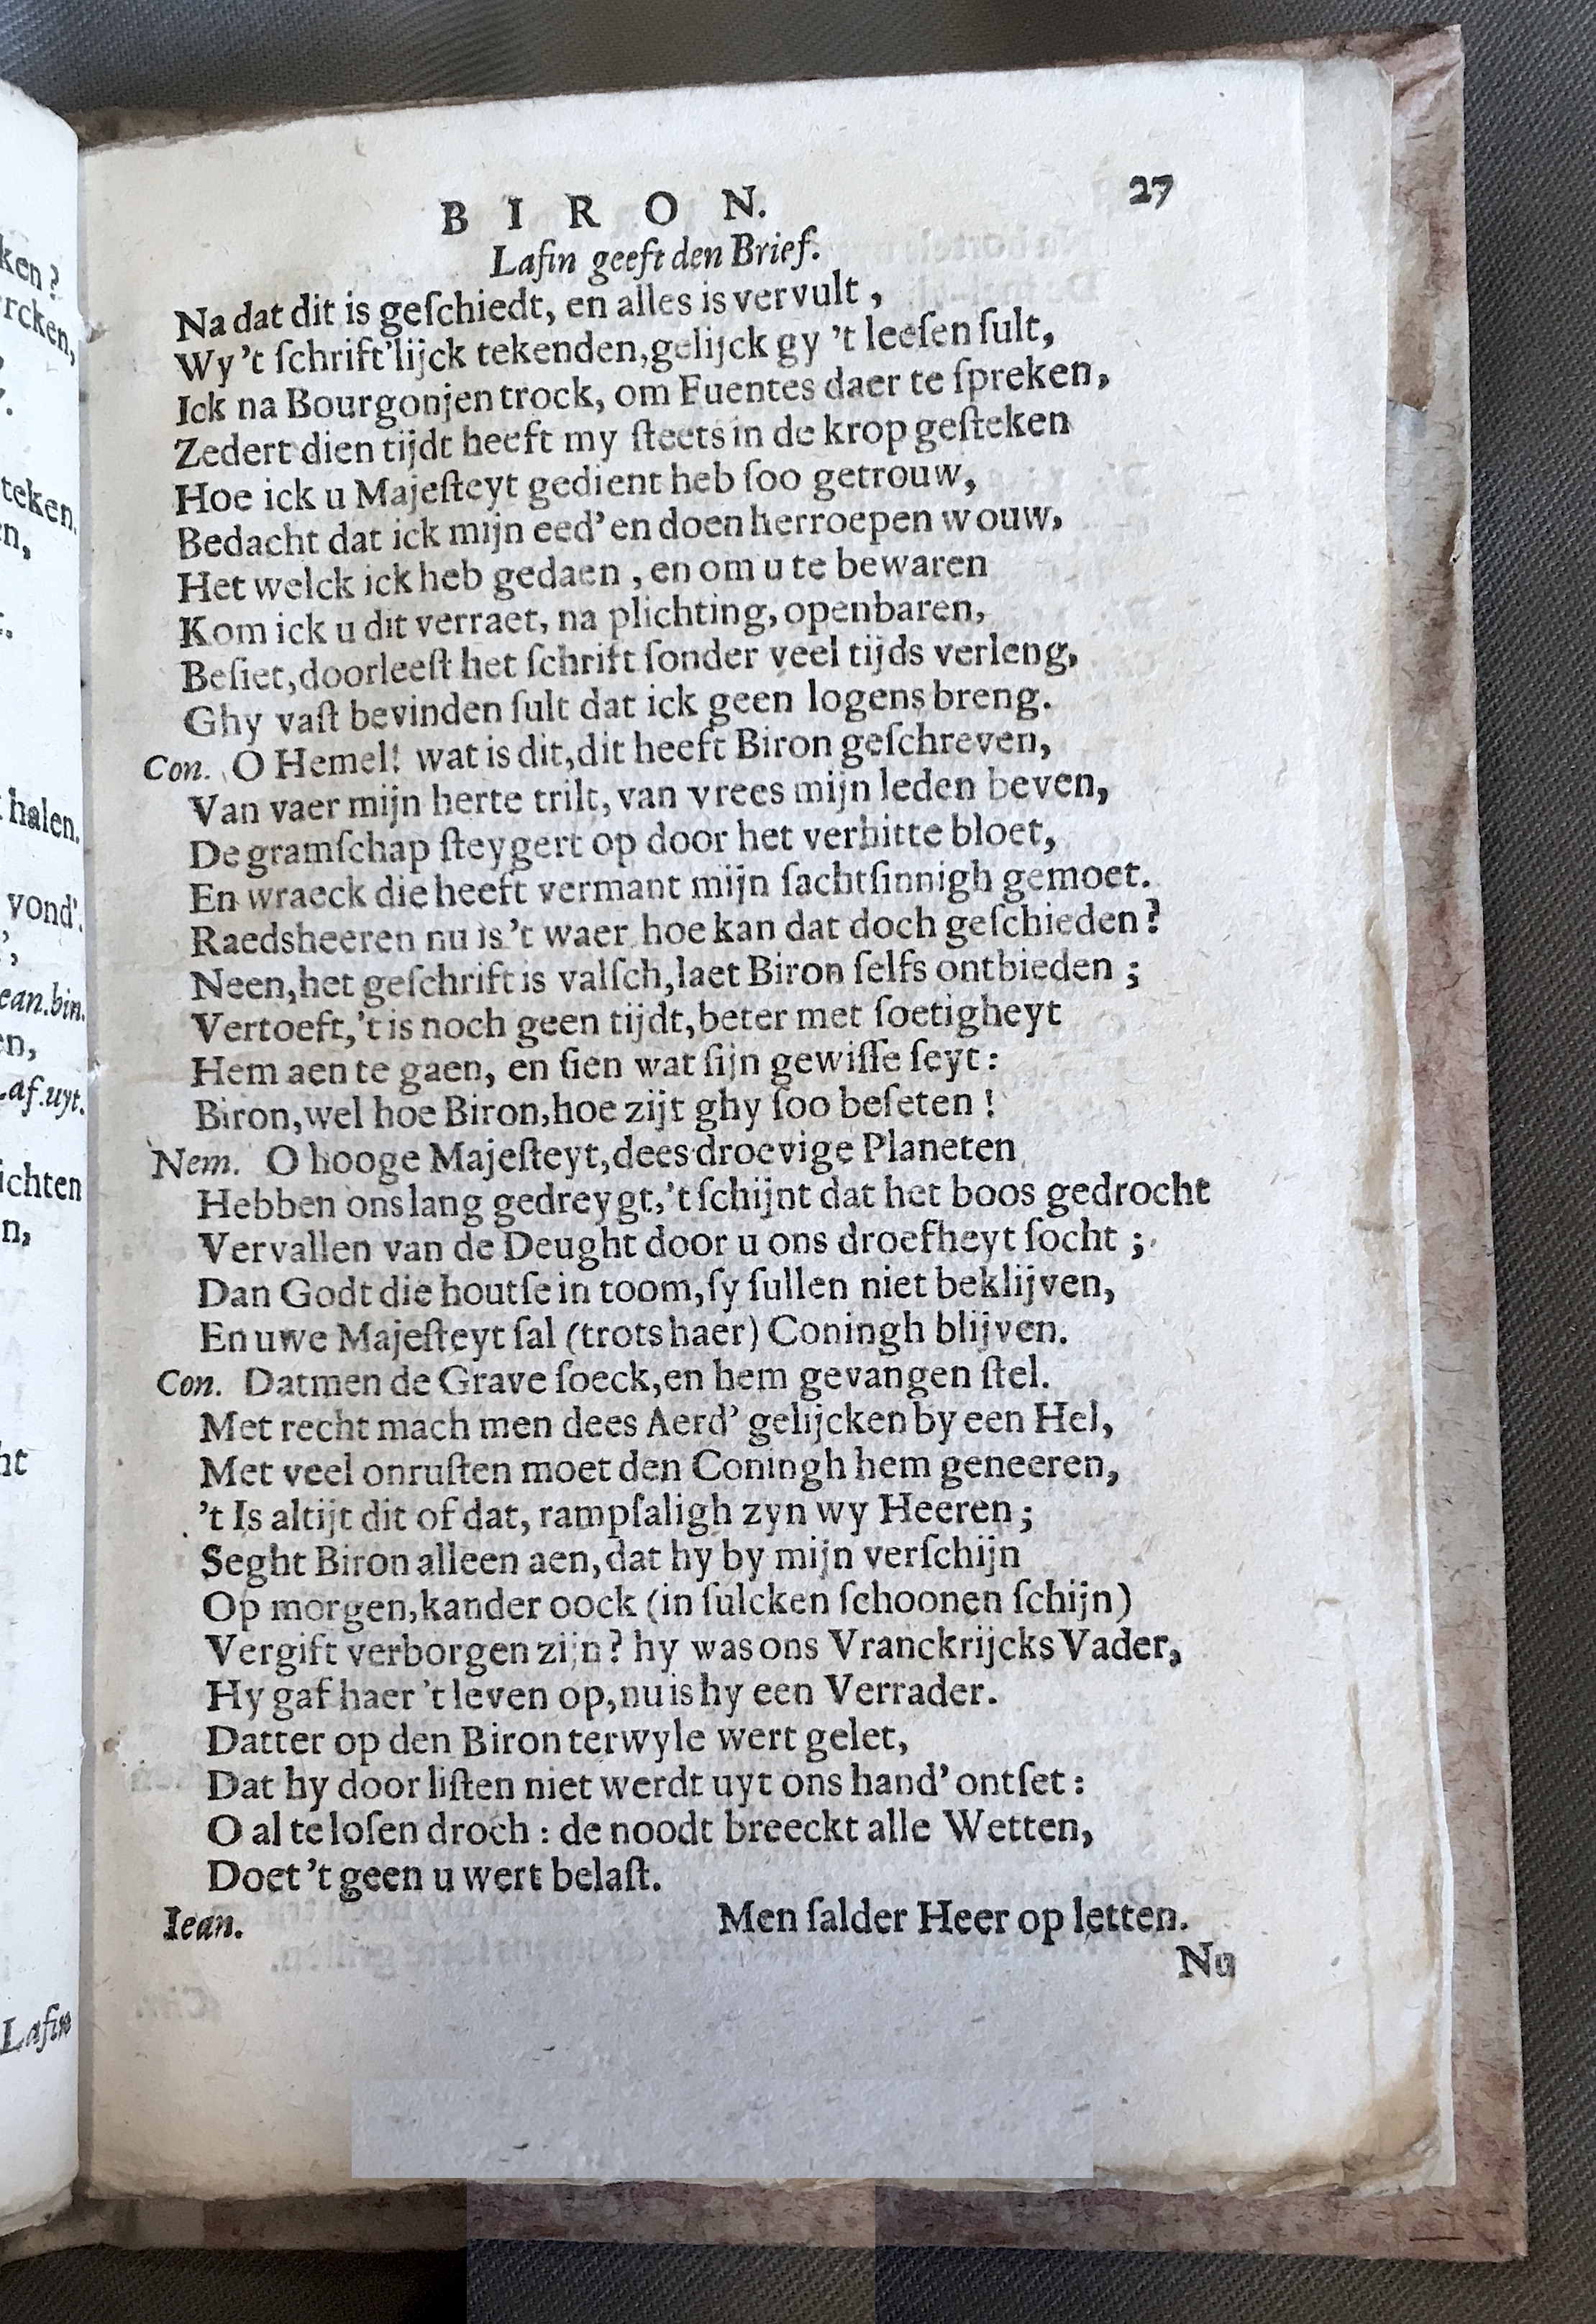 BIRON. 27
Lafin geeft den Brief.
Na dat dit is geſchiedt, en alles is vervult,
Wy 't ſchrift'lijck tekenden, gelijck gy 't leeſen ſult,
Ick na Bourgonjen trock, om Fuentes daer te ſpreken,
Zedert dien tijdt heeft my ſteets in de krop geſteken
Hoe ick u Majeſteyt gedient heb ſoo getrouw,
Bedacht dat ick mijn eed' en doen herroepen wouw,
Het welck ick heb gedaen, en om u te bewaren
Kom ick u dit verraet, na plichting, openbaren,
Beſiet, doorleeſt het ſchrift ſonder veel tijds verleng,
Ghy vaſt bevinden ſult dat ick geen logens breng.
Con. O Hemel! wat is dit, dit heeft Biron geſchreven,
Van vaer mijn herte trilt, van vrees mijn leden beven,
De gramſchap ſteygert op door het verhitte bloet,
En wraeck die heeft vermant mijn ſachtſinnigh gemoet.
Raedsheeren nu is 't waer hoe kan dat doch geſchieden?
Neen, het geſchrift is valſch, laet Biron ſelfs ontbieden;
Vertoeft, 't is noch geen tijdt, beter met ſoetigheyt
Hem aen te gaen, en ſien wat ſijn gewiſſe ſeyt:
Biron, wel hoe Biron, hoe zijt ghy ſoo beſeten!
Nem. O hooge Majeſteyt, dees droevige Planeten
Hebben ons lang gedreygt, 't ſchijnt dat het boos gedrocht
Vervallen van de Deught door u ons droefheyt ſocht;
Dan Godt die hout ſe in toom, ſy ſullen niet beklijven,
En uwe Majeſteyt ſal (trots haer) Coningh blijven.
Con. Datmen de Grave ſoeck, en hem gevangen ſtel.
Met recht mach men dees Aerd' gelijcken by een Hel,
Met veel onruſten moet den Coningh hem geneeren,
't Is altijt dit of dat, rampſaligh zyn wy Heeren;
Seght Biron alleen aen, dat hy by mijn verſchijn
Op morgen, kander oock (in ſulcken ſchoonen ſchijn)
Vergift verborgen zijn? hy was ons Vranckrijcks Vader,
Hy gaf haer 't leven op, nu is hy een Verrader.
Datter op den Biron terwyle wert gelet,
Dat hy door liſten niet werdt uyt ons hand' ontſet:
O al te loſen droch: de noodt breeckt alle Wetten,
Doet 't geen u wert belaſt.
Iean. Men ſalder Heer op letten.
Nu
ken?
rcken,
teken.
n,
halen.
vond'.
ean. bin.
en,
Laf. uyt.
ichten
n,
ht
Lafin